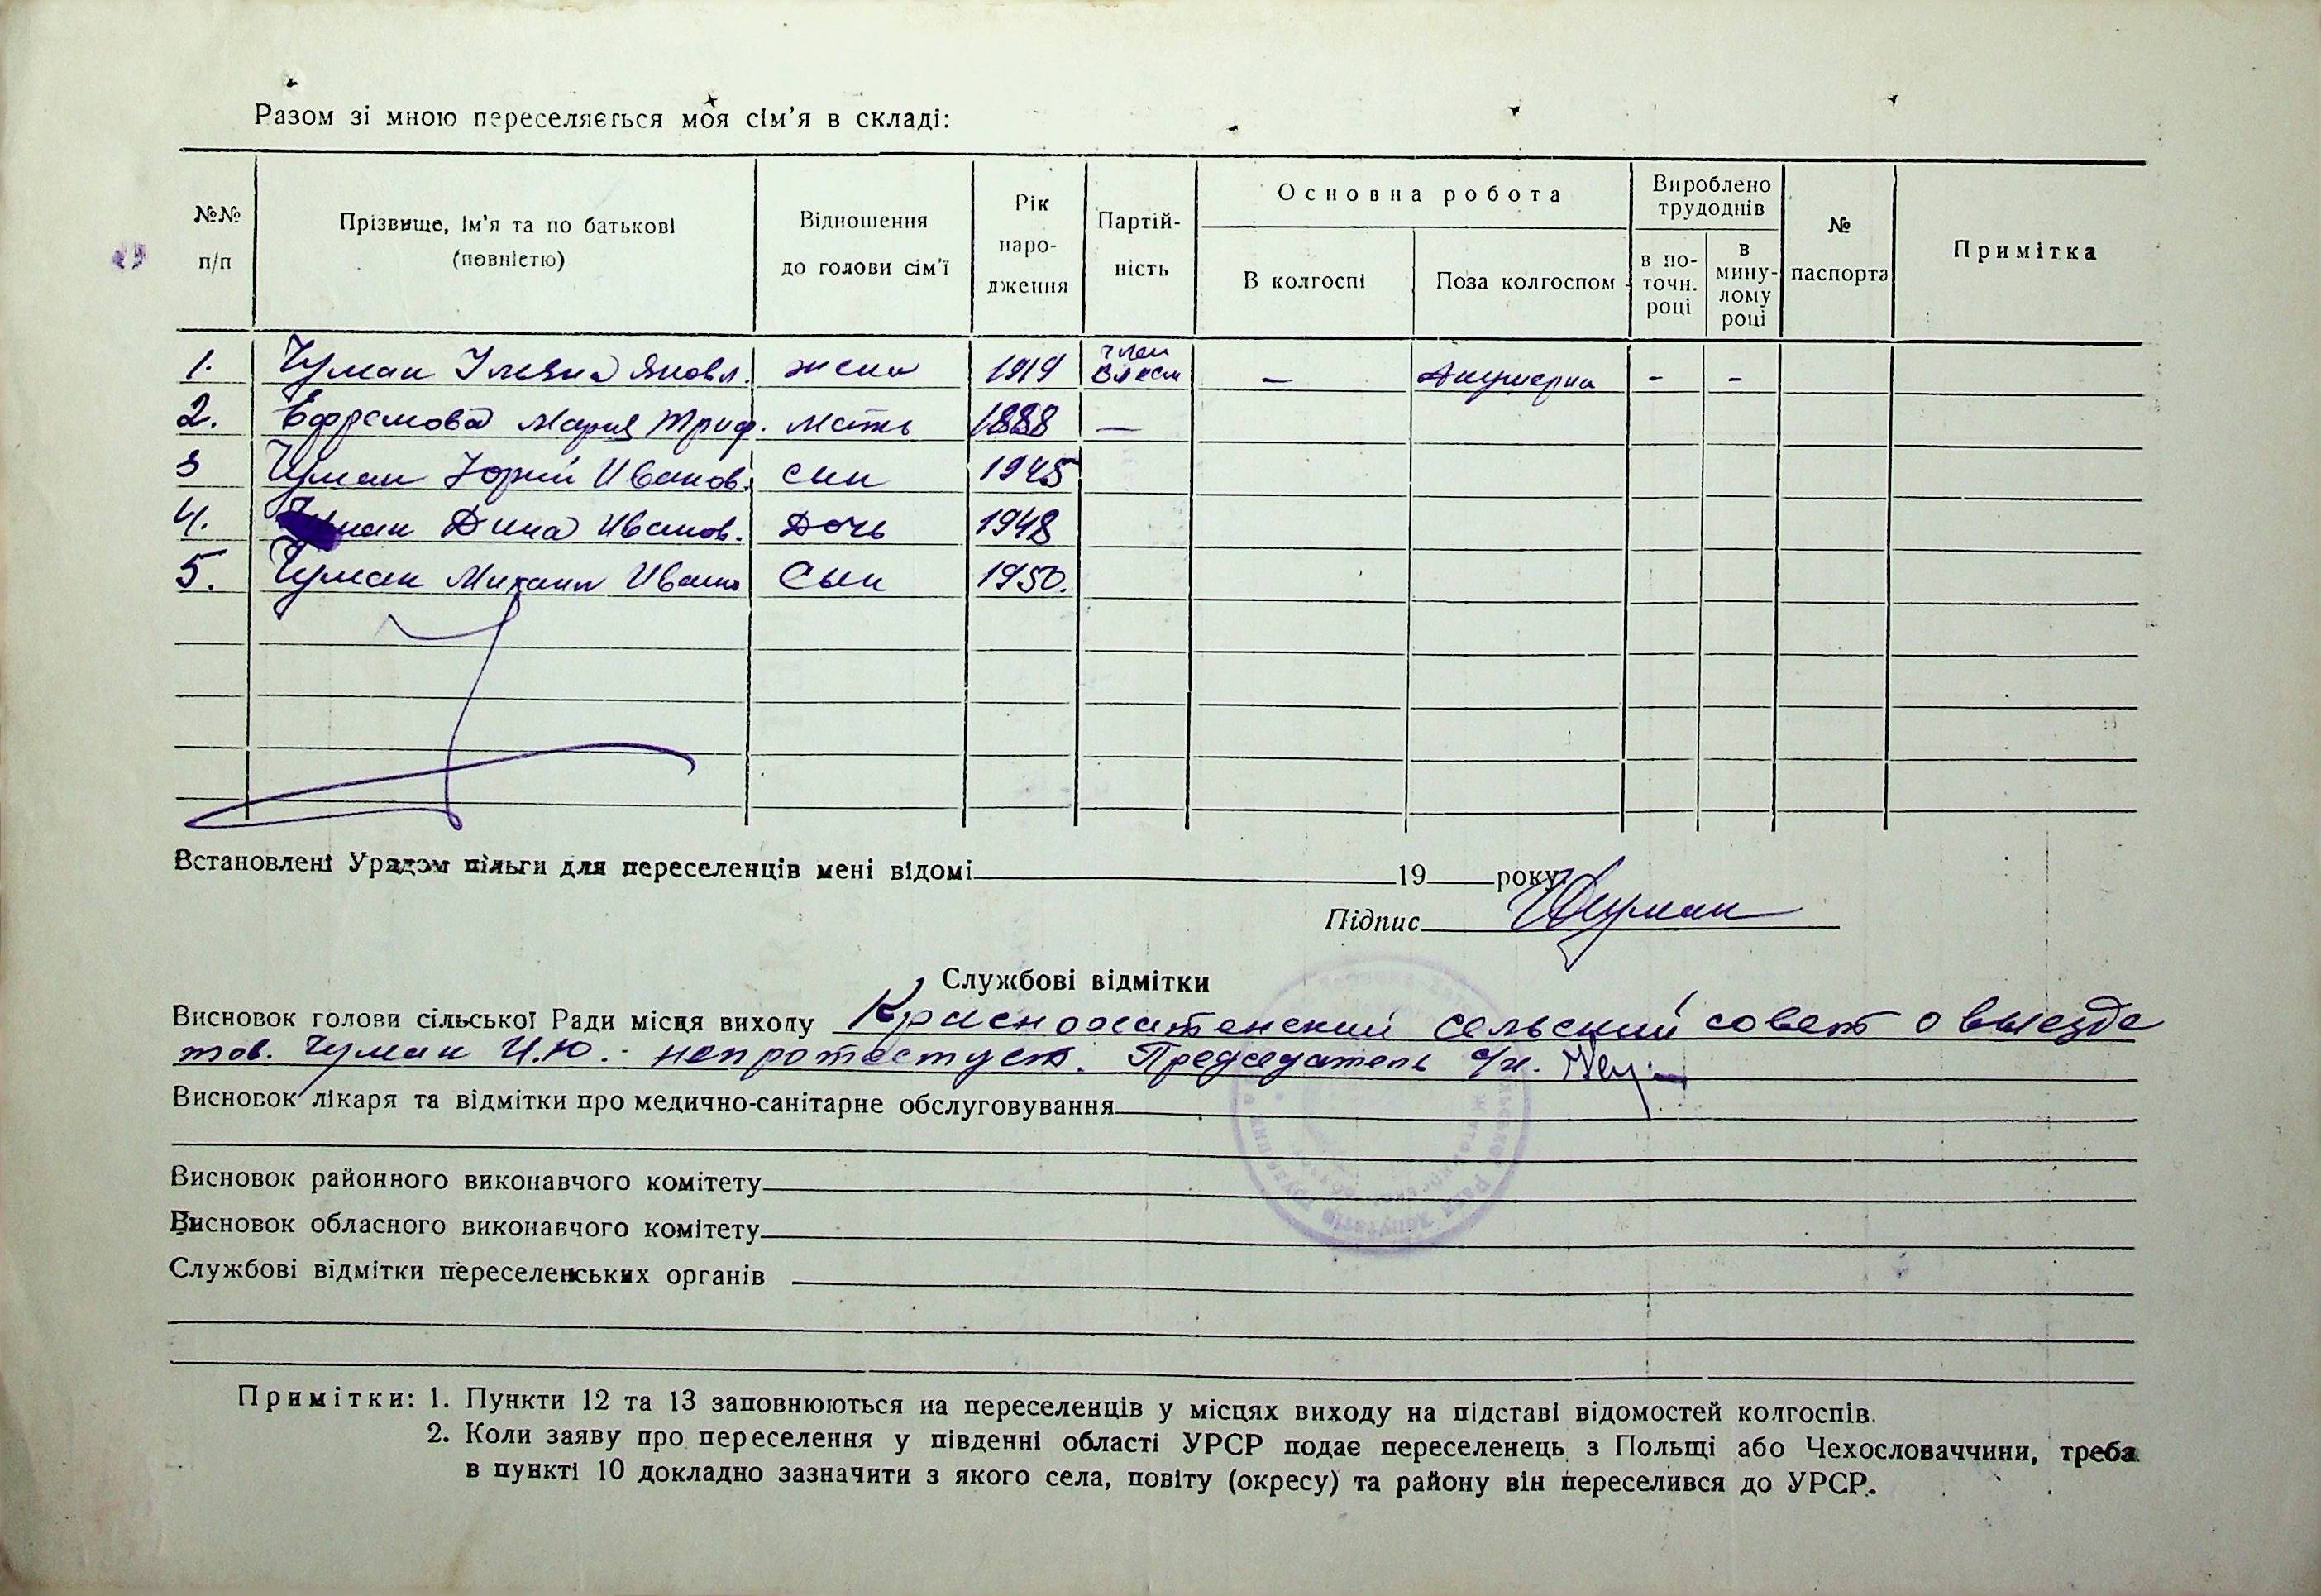 Разом зі мною переселяється моя сім’я в складі:
№№ п/п
Прізвище, ім’я та по батькові (повністю)
Відношення до голови сім’ї
Рік наро- дження
Партій- ність
Основна робота
В колгоспі
Поза колгоспом
Вироблено трудоднів
в по- точн. році
в мину- лому році
№ паспорта
Примітка
1. Чуман Яковл. жена 1919 член Влксм — Акушерка - -
2. Ефремова Мария Триф. мать 1888 —
3 Чуман Юрий Иванов. сын 1945
4. Чуман Дина Иванов. Дочь 1948
5. Чуман Михаил Ивано Сын 1950.
Встановлені Урядом пільги для переселенців мені відомі 19 року.
Підпис Чуман
Службові відмітки
Висновок голови сільської Ради місця виходу Краснохатенский сельский совет о выезде
тов. Чуман И.Ю. - непротестует. Председатель с/и.
Висновок лікаря та відмітки про медично-санітарне обслуговування
Висновок районного виконавчого комітету
Висновок обласного виконавчого комітету
Службові відмітки переселенських органів
Примітки: 1. Пункти 12 та 13 заповнюються на переселенців у місцях виходу на підставі відомостей колгоспів.
2. Коли заяву про переселення у південні області УРСР подає переселенець з Польщі або Чехословаччини, треба
в пункті 10 докладно зазначити з якого села, повіту (окресу) та району він переселився до УРСР.